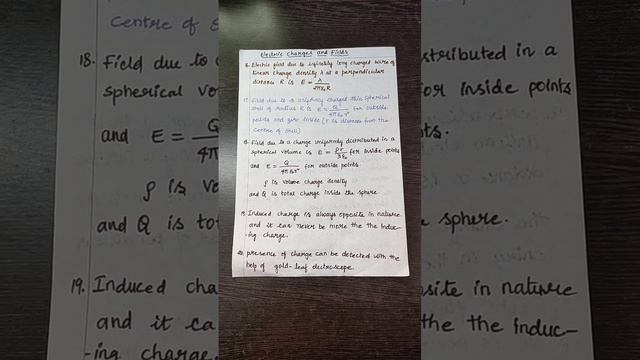 Centre of s
18. Field due to
spherical vo
and E = Q/4π
ρ is v
and Q is tot
19. Induced cha
and it ca
-ing charge.
Electric Charges and Fields
16. Electric field due to infinitely long charged wire of
linear charge density λ at a perpendicular
distance R is E = λ/2πε₀R
17. Field due to a uniformly charged thin spherical
shell of radius R is E = Q/4πε₀r² for outside
points and zero inside (r is distance from the
centre of shell)
18. Field due to a charge uniformly distributed in a
spherical volume is E = ρr/3ε₀ for inside points
and E = Q/4πε₀r² for outside points.
ρ is volume charge density
and Q is total charge inside the sphere.
19. Induced charge is always opposite in nature
and it can never be more the the induc-
-ing charge.
20. presence of charge can be detected with the
help of gold-leaf electroscope.
stributed in a
for inside points
sphere.
site in nature
the the induc-